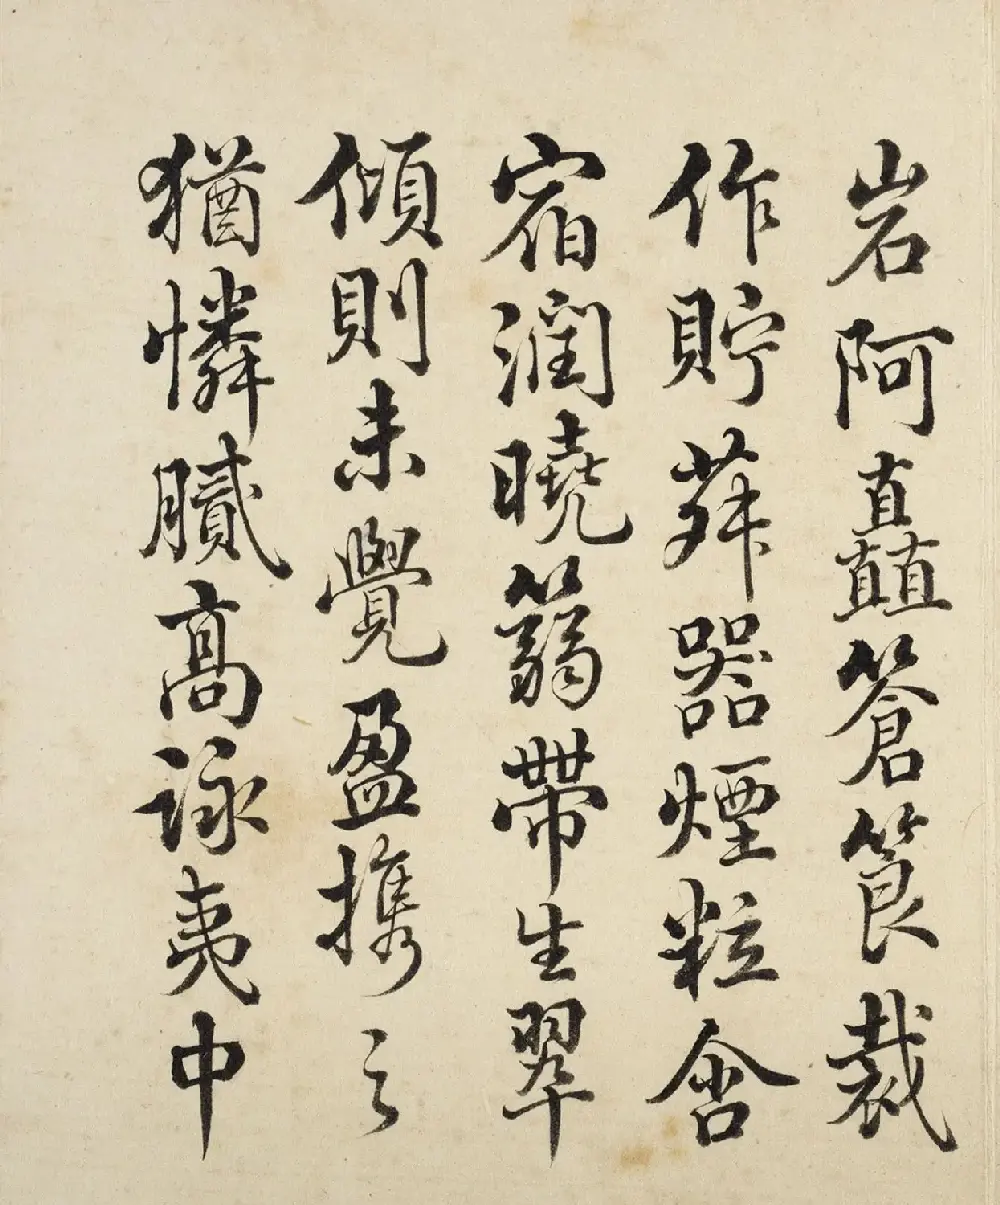 岩阿矗篬筤裁
作貯荈器煙粒含
宿潤曉篛帶生翠
傾則未覺盈携之
猶憐膩高詠夷中